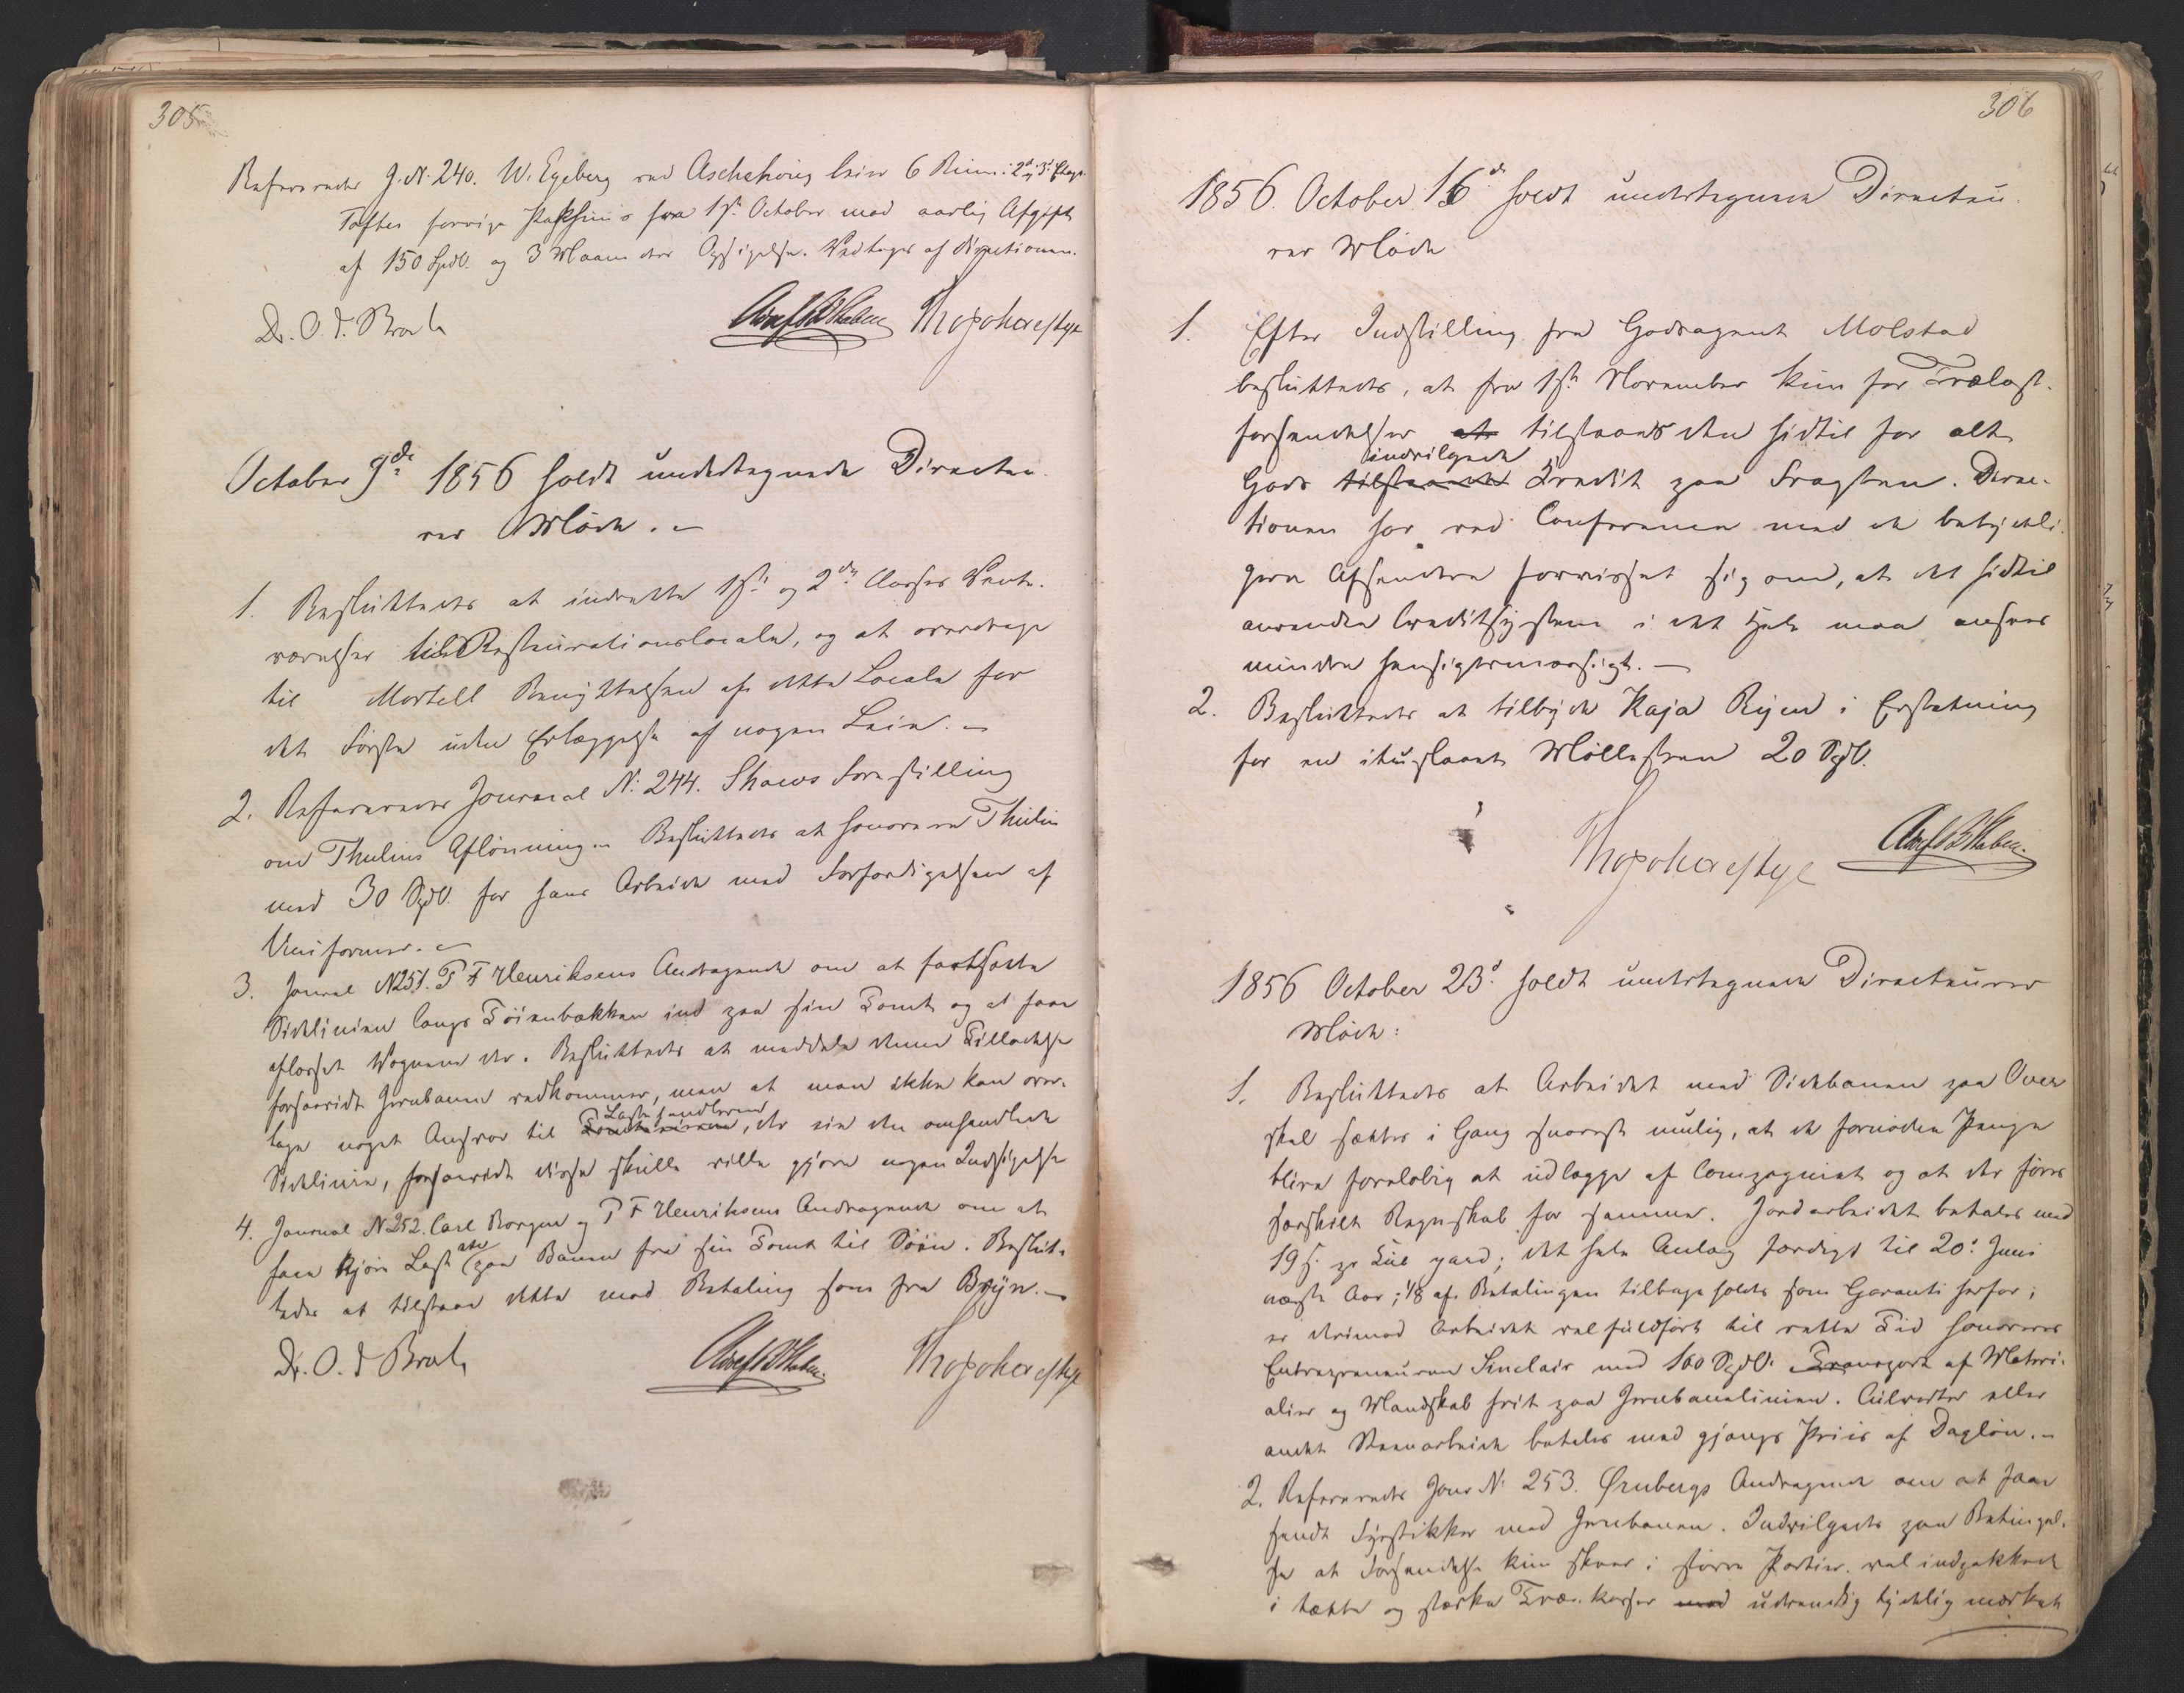 305
Refereredes J. N. 240. W. Egeberg ved Aschehoug leier 6 Rum i 2d og 3d Etage
Toftes forrige Pakhuus fra 1ste October mod aarlig Afgift
af 150 Spdl. og 3 Maaneders Opsigelse. Vedtages af Directionen.
Dr. O. J. Broch
October 9de 1856 holdt undertegnede Directeu
rer Möde. -
1. Besluttedes at indrette 1ste og 2den Classes Vente-
værelser til Restaurationslocale, og at overdrage
til Martell Benyttelsen af dette Locale for
det Förste uden Erlæggelse af nogen Leie. -
2. Refereredes Journal N: 244. Shaws Forestilling
om Thulins Aflönning. - Besluttedes at honorere Thulin
med 30 Spdl. for hans Arbeide med Forfærdigelsen af
Uniformer. -
3. Journal N 251. P F Henriksens Andragende om at fortsætte
Sidelinien langs Töienbækken ind paa sin Tomt og at faae
aflæsset Vognene der. Besluttedes at meddele denne Tilladelse
forsaavidt Jernbanen vedkommer, men at man ikke kan over-
Lasthandlerne
tage noget Ansvar til , der eie den omhandlede
Sidelinie, forsaavidt disse skulle ville gjöre nogen Indsigelse
4. Journal N 252. Carl Borgen og P F Henriksens Andragende om at
faae kjöre Last paa Banen fra sin Tomt til Söen. Beslut-
tedes at tilstaae dette mod Betaling som fra Bryn. -
Dr. O. J Broch
306
1856. October 16de holdt undertegnede Directeu-
rer Möde
1. Efter Indstilling fra Godsagent Molstad
besluttedes, at fra 1ste November kun for Trælast-
forsendelser at tilstaaes den hidtil for alt
indvilgede
Gods tilstaaede Credit paa Fragten. Direc-
tionen har ved Conferencen med de betydeli-
gere Afsendere forvisset sig om, at det hidtil
anvendte Creditsystem i det Hele maa ansees
mindre hensigtsmæssigt. -
2. Besluttedes at tilbyde Kaja Ryen i Erstatning
for en ituslaaet Möllesteen 20 Spdl.
1856 October 23d holdt undertegnede Directeurer
Möde:
1. Besluttedes at Arbeidet med Sidebanen paa Oven
skal sættes i Gang snarest mulig, at de fornödne Penge
blive forelöbig at udlægge af Compagniet og at der föres
særskilt Regnskab for samme. Jordarbeidet betales med
19 s. pr Cub yard; det hele Anlæg færdigt til 20de Juni
næste Aar; 1/8 af Betalingen tilbageholdes som Garanti herfor;
er derimod Arbeidet vel fuldfört til rette Tid honoreres
Entrepreneuren Sinclair med 100 Spdl. Transport af Materi-
alier og Mandskab frit paa Jernbanelinien. Culverter eller
andet Steenarbeide betales med gjængs Priis af Daglön. -
2. Refereredes Jour N: 253. Ørnbergs Andragende om at faae
sendt Fyrstikker med Jernbanen. Indvilgedes paa Betingel-
se at Forsendelse kun skeer i större Partier. vel indpakkede
i tætte og stærke Trækasser med udvendig tydelig mærket